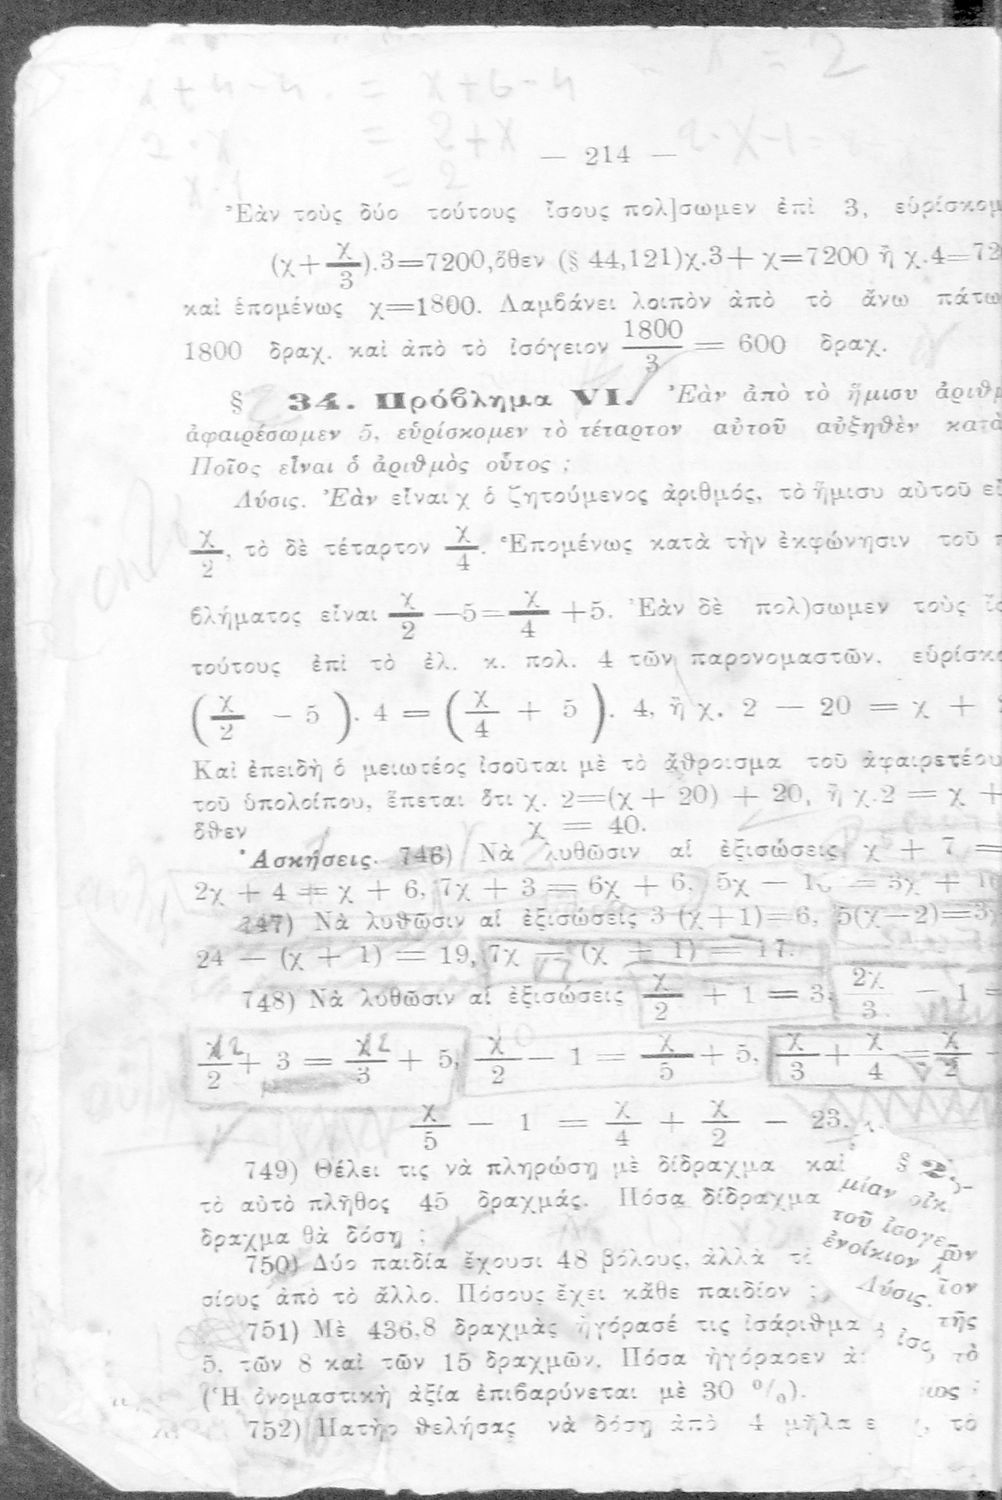 x + 4 - 4 = x + 6 - 4
x = 2
2 · x = 2 + x
— 214 —
Ἐὰν τοὺς δύο τούτους ἴσους πολ]σωμεν ἐπὶ 3, εὑρίσκομ
(χ+χ/3).3=7200, ὅθεν (§ 44,121)χ.3+ χ=7200 ἢ χ.4=72
καὶ ἑπομένως χ=1800. Λαμβάνει λοιπὸν ἀπὸ τὸ ἄνω πάτω
1800 δραχ. καὶ ἀπὸ τὸ ἰσόγειον 1800/3 = 600 δραχ.
§ 34. Πρόβλημα VI. Ἐὰν ἀπὸ τὸ ἥμισυ ἀριθμ
ἀφαιρέσωμεν 5, εὑρίσκομεν τὸ τέταρτον αὐτοῦ αὐξηθὲν κατὰ
Ποῖος εἶναι ὁ ἀριθμὸς οὗτος ;
Λύσις. Ἐὰν εἶναι χ ὁ ζητούμενος ἀριθμός, τὸ ἥμισυ αὐτοῦ εἶ
χ/2, τὸ δὲ τέταρτον χ/4. Ἑπομένως κατὰ τὴν ἐκφώνησιν τοῦ π
βλήματος εἶναι χ/2 —5= χ/4 +5. Ἐὰν δὲ πολ)σωμεν τοὺς ἴσ
τούτους ἐπὶ τὸ ἐλ. κ. πολ. 4 τῶν παρονομαστῶν, εὑρίσκο
(χ/2 - 5). 4 = (χ/4 + 5). 4, ἢ χ. 2 — 20 = χ +
Καὶ ἐπειδὴ ὁ μειωτέος ἰσοῦται μὲ τὸ ἄθροισμα τοῦ ἀφαιρετέου
τοῦ ὑπολοίπου, ἕπεται ὅτι χ. 2=(χ + 20) + 20, ἢ χ.2 = χ +
ὅθεν χ = 40.
Ἀσκήσεις. 746) Νὰ λυθῶσιν αἱ ἐξισώσεις χ + 7 =
2χ + 4 = χ + 6, 7χ + 3 = 6χ + 6, 5χ — 10 = 3χ + 10
747) Νὰ λυθῶσιν αἱ ἐξισώσεις 3 (χ+1)=6, 5(χ—2)=3
24 — (χ + 1) = 19, 7χ — (χ + 1) = 17.
748) Νὰ λυθῶσιν αἱ ἐξισώσεις χ/2 + 1 = 3, 2χ/3 — 1 =
χ/2 + 3 = χ/3 + 5, χ/2 — 1 = χ/5 + 5, χ/3 + χ/4 = χ/2
χ/5 — 1 = χ/4 + χ/2 — 23.
749) Θέλει τις νὰ πληρώσῃ μὲ δίδραχμα καὶ
τὸ αὐτὸ πλῆθος 45 δραχμάς. Πόσα δίδραχμα
δραχμα θὰ δόσῃ ;
750) Δύο παιδία ἔχουσι 48 βόλους, ἀλλὰ τὸ
σίους ἀπὸ τὸ ἄλλο. Πόσους ἔχει κάθε παιδίον ;
751) Μὲ 436,8 δραχμὰς ἠγόρασέ τις ἰσάριθμα
5, τῶν 8 καὶ τῶν 15 δραχμῶν. Πόσα ἠγόρασεν ἀ
(Ἡ ὀνομαστικὴ ἀξία ἐπιβαρύνεται μὲ 30 %).
752) Πατὴρ θελήσας νὰ δόσῃ ἀπὸ 4 μῆλα ε
§ 2
μίαν οἰκ
τοῦ ἰσογε
ἐνοίκιον
Λύσις.
ἰσ
τῆς
τὸ